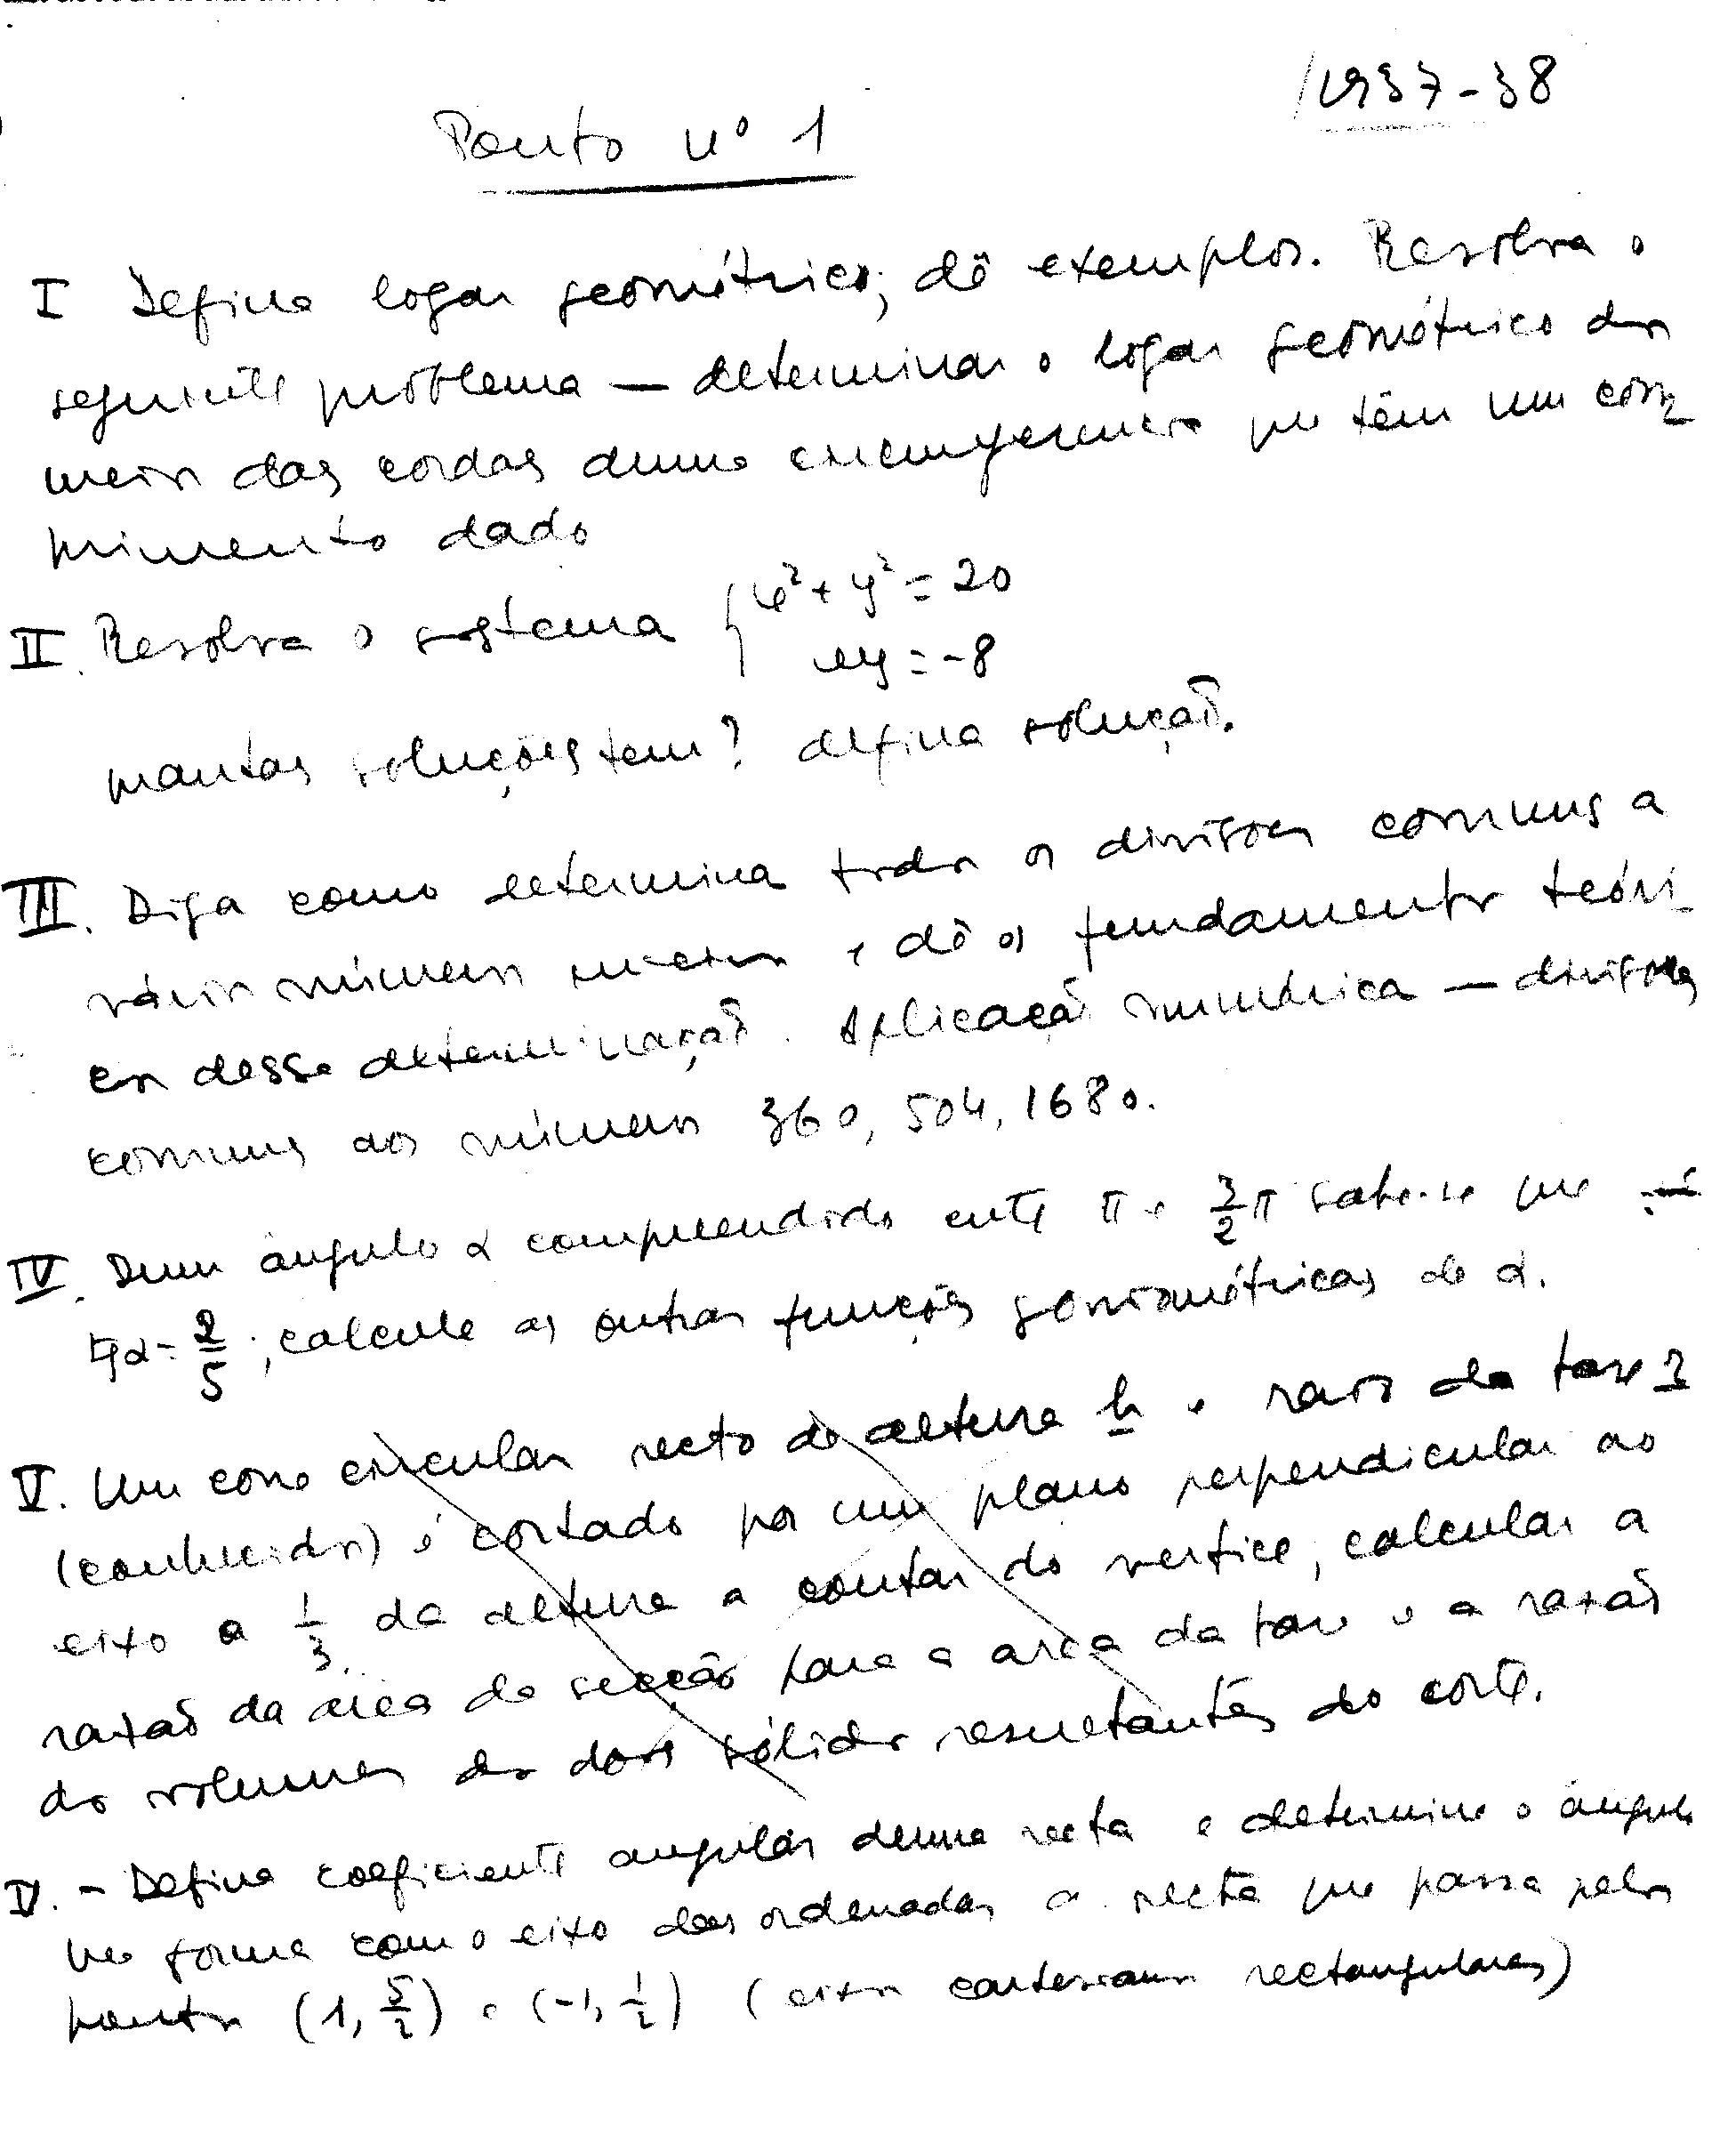 1937-38
Ponto nº 1
I Defina logar geométrico; dê exemplos. Resolva o
seguinte problema — determinar o logar geométrico dos
meios das cordas duma circunferencia que têm um com
primento dado
II. Resolva o sistema { x² + y² = 20
xy = -8
quantas soluções tem? defina solução.
III. Diga como determina todos os divisores comuns a
vários números inteiros e dê os fundamentos teóri
cos dessa determinação. Aplicação numérica — divisores
comuns aos números 360, 504, 1680.
IV. Dum ângulo α compreendido entre π e 3/2 π sabe-se que
tgα = 2/5; calcule as outras funções goniométricas de α.
V. Um cone circular recto de altura h e raio da base r
(conhecidos) é cortado por um plano perpendicular ao
eixo a 1/3 da altura a contar do vertice, calcular a
razão da área da secção para a area da base e a razão
do volumes do dois sólidos resultantes do corte.
V. - Defina coeficiente angular duma recta e determine o ângulo
que forma com o eixo das ordenadas a recta que passa pelos
pontos (1, 5/2) e (-1, 1/2) (eixos cartesianos rectangulares)